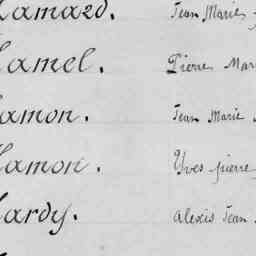 Hamard. Jean Marie
Hamel. Pierre Mar
Hamon. Jean Marie
Hamon. Yves pierre
Hardy. alexis Jean